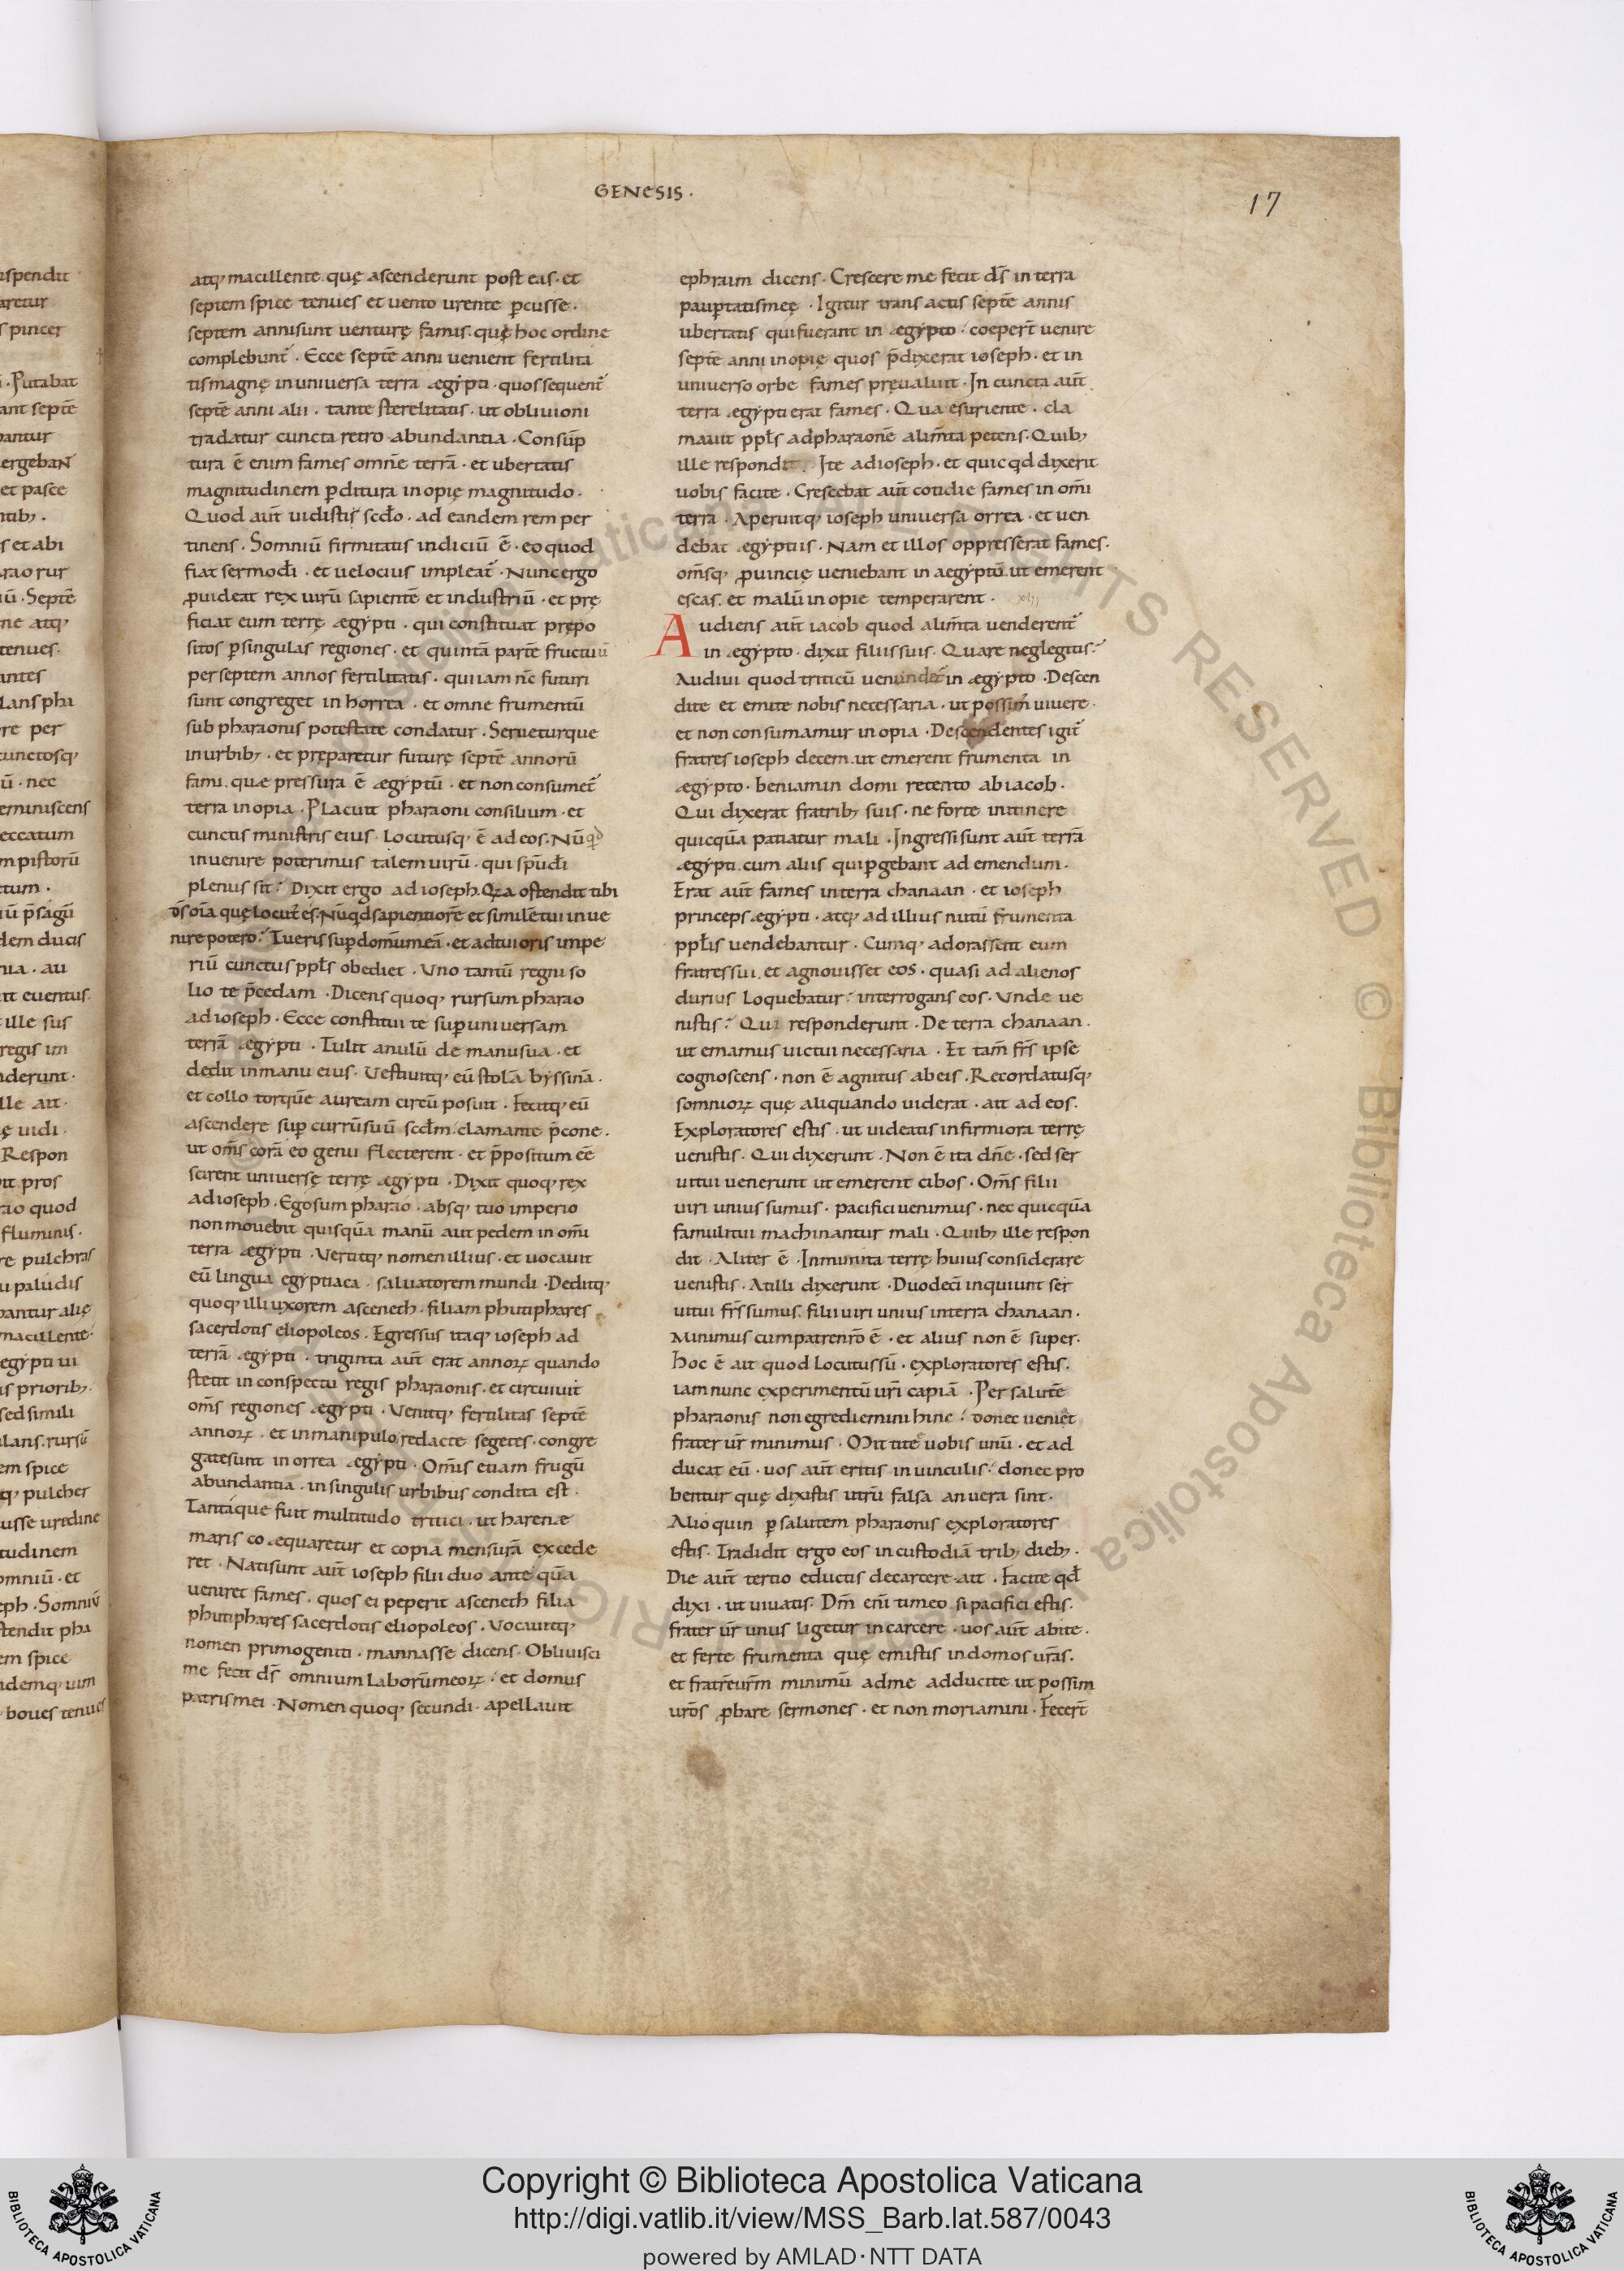 GENESIS ·
17
atq; macillente quę ascenderunt post eas · et
septem spice tenues et vento urente ꝑcusse ·
septem anni sunt venturę famis · quę hoc ordine
complebunt̄ · Ecce septē anni venient fertilita
tis magnę in universa terra ægypti · quos sequent̄
septē anni alii · tante sterelitatis · ut oblivioni
tradatur cuncta retro abundantia · Consūp
tura ē enim fames omnē terrā · et ubertatis
magnitudinem ꝑditura inopię magnitudo ·
Quod aūt vidistis scd̄o · ad eandem rem per
tinens · Somniū firmitatis indiciū ē · eo quod
fiat sermo d̄i · et velocius impleat̄ · Nunc ergo
ꝓvideat rex virū sapientē et industriū · et prę
ficiat eum terrę ægypti · qui constituat prępo
sitos ꝑ singulas regiones · et quintā partē fructuū
per septem annos fertilitatis · qui iam n̄c futuri
sunt congreget in horrea · et omne frumentū
sub pharaonis potestate condatur · Serveturque
in urbib; · et preparetur futurę septē annorū
fami · quæ pressura ē ægyptū · et non consumet̄
terra inopia · Placuit pharaoni consilium · et
cunctis ministris eius · Locutusq; ē ad eos · Nūqd
invenire poterimus talem virū · qui sp̄u d̄i
plenus sit? Dixit ergo ad ioseph · Qꝛa ostendit tibi
d̄s oīa quę locut̄ es · Nūqd sapientiorē et similē tui inve
nire potero? Tu eris suꝑ domū meā · et ad tui oris impe
riū cunctus ppl̄s obediet · Uno tantū regni so
lio te p̄cedam · Dicens quoq; rursum pharao
ad ioseph · Ecce constitui te suꝑ universam
terrā ægypti · Tulit anulū de manu sua · et
dedit in manu eius · Vestivitq; eū stolā byssinā ·
et collo torquē auream circū posuit · Fecitq; eū
ascendere suꝑ currū suū scd̄m · clamante p̄cone ·
ut om̄s corā eo genu flecterent · et p̄positum eē
scirent universę terrę ægypti · Dixit quoq; rex
ad ioseph · Ego sum pharao · absq; tuo imperio
non movebit quisquā manū aut pedem in om̄i
terra ægypti · Vertitq; nomen illius · et vocavit
eū lingua egyptiaca · salvatorem mundi · Deditq;
quoq; illi uxorem asceneth · filiam phutiphares
sacerdotis eliopoleos · Egressus itaq; ioseph ad
terrā ægypti · triginta aūt erat annoꝝ quando
stetit in conspectu regis pharaonis · et circuivit
om̄s regiones ægypti · Venitq; fertilitas septē
annoꝝ · et in manipulo redacte segetes · congre
gate sunt in orrea ægypti · Om̄is etiam frugū
abundantia · in singulis urbibus condita est ·
Tantaque fuit multitudo tritici · ut harenæ
maris coæquaretur et copia mensurā excede
ret · Nati sunt aūt ioseph filii duo ante quā
veniret fames · quos ei peperit asceneth filia
phutiphares sacerdotis eliopoleos · Vocavitq;
nomen primogeniti · mannasse dicens · Oblivisci
me fecit d̄s omnium laborū meoꝝ · et domus
patris mei · Nomen quoq; secundi · apellavit
ephraim dicens · Crescere me fecit d̄s in terra
pauꝑtatis meę · Igitur transactis septē annis
ubertatis qui fuerant in ægypto · coeper̄t venire
septē anni inopię quos p̄dixerat ioseph · et in
universo orbe fames pręvaluit · In cuncta aūt
terra ægypti erat fames · Qua esuriente · cla
mavit ppl̄s ad pharaonē alim̄ta petens · Quib;
ille respondit · Ite ad ioseph · et quicqd dixerit
vobis facite · Crescebat aūt cotidie fames in om̄i
terra · Aperuitq; ioseph universa orrea · et ven
debat ægyptiis · Nam et illos oppresserat fames ·
om̄sq; ꝓvincię veniebant in aegyptū ut emerent
escas · et malū inopie temperarent ·
Audiens aūt iacob quod alim̄ta venderent̄
in ægypto · dixit filiis suis · Quare neglegitis?
Audivi quod triticū venundet̄ in ægypto · Descen
dite et emite nobis necessaria · ut possim̄ vivere ·
et non consumamur inopia · Descendentes igit̄
fratres ioseph decem · ut emerent frumenta in
ægypto · beniamin domi retento ab iacob ·
Qui dixerat fratrib; suis · ne forte in itinere
quicquā patiatur mali · Ingressi sunt aūt terrā
ægypti cum aliis qui ꝑgebant ad emendum ·
Erat aūt fames in terra chanaan · et ioseph
princeps ægypti · atq; ad illius nutū frumenta
ppl̄is vendebantur · Cumq; adorassent eum
fratres sui · et agnovisset eos · quasi ad alienos
durius loquebatur · interrogans eos · Unde ve
nistis? Qui responderunt · De terra chanaan ·
ut emamus victui necessaria · Et tam̄ fr̄s ipse
cognoscens · non ē agnitus ab eis · Recordatusq;
somnioꝝ quę aliquando viderat · ait ad eos ·
Exploratores estis · ut videatis infirmiora terrę
venistis · Qui dixerunt · Non ē ita dn̄e · sed ser
vi tui venerunt ut emerent cibos · Om̄s filii
viri unius sumus · pacifici venimus · nec quicquā
famuli tui machinantur mali · Quib; ille respon
dit · Aliter ē · Inmunita terrę huius considerare
venistis · At illi dixerunt · Duodecī inquiunt ser
vi tui fr̄s sumus · filii viri unius in terra chanaan ·
Minimus cum patre nr̄o ē · et alius non ē super ·
Hoc ē ait quod locutus sū · exploratores estis ·
iam nunc experimentū vr̄i capiā · Per salutē
pharaonis non egrediemini hinc · donec veniet
frater vr̄ minimus · Mittite e vobis unū · et ad
ducat eū · vos aūt eritis in vinculis · donec pro
bentur quę dixistis utrū falsa an vera sint ·
Alioquin ꝑ salutem pharaonis exploratores
estis · Tradidit ergo eos in custodiā trib; dieb; ·
Die aūt tertio eductis de carcere · ait · Facite qd̄
dixi · ut vivatis · Dm̄ en̄i timeo si pacifici estis ·
frater vr̄ unus ligetur in carcere · vos aūt abite ·
et ferte frumenta quę emistis in domos vr̄as ·
et fratrē vr̄m minimū ad me adducite ut possim
vr̄os ꝓbare sermones · et non moriamini · Fecer̄t
Copyright © Biblioteca Apostolica Vaticana
http://digi.vatlib.it/view/MSS_Barb.lat.587/0043
powered by AMLAD·NTT DATA